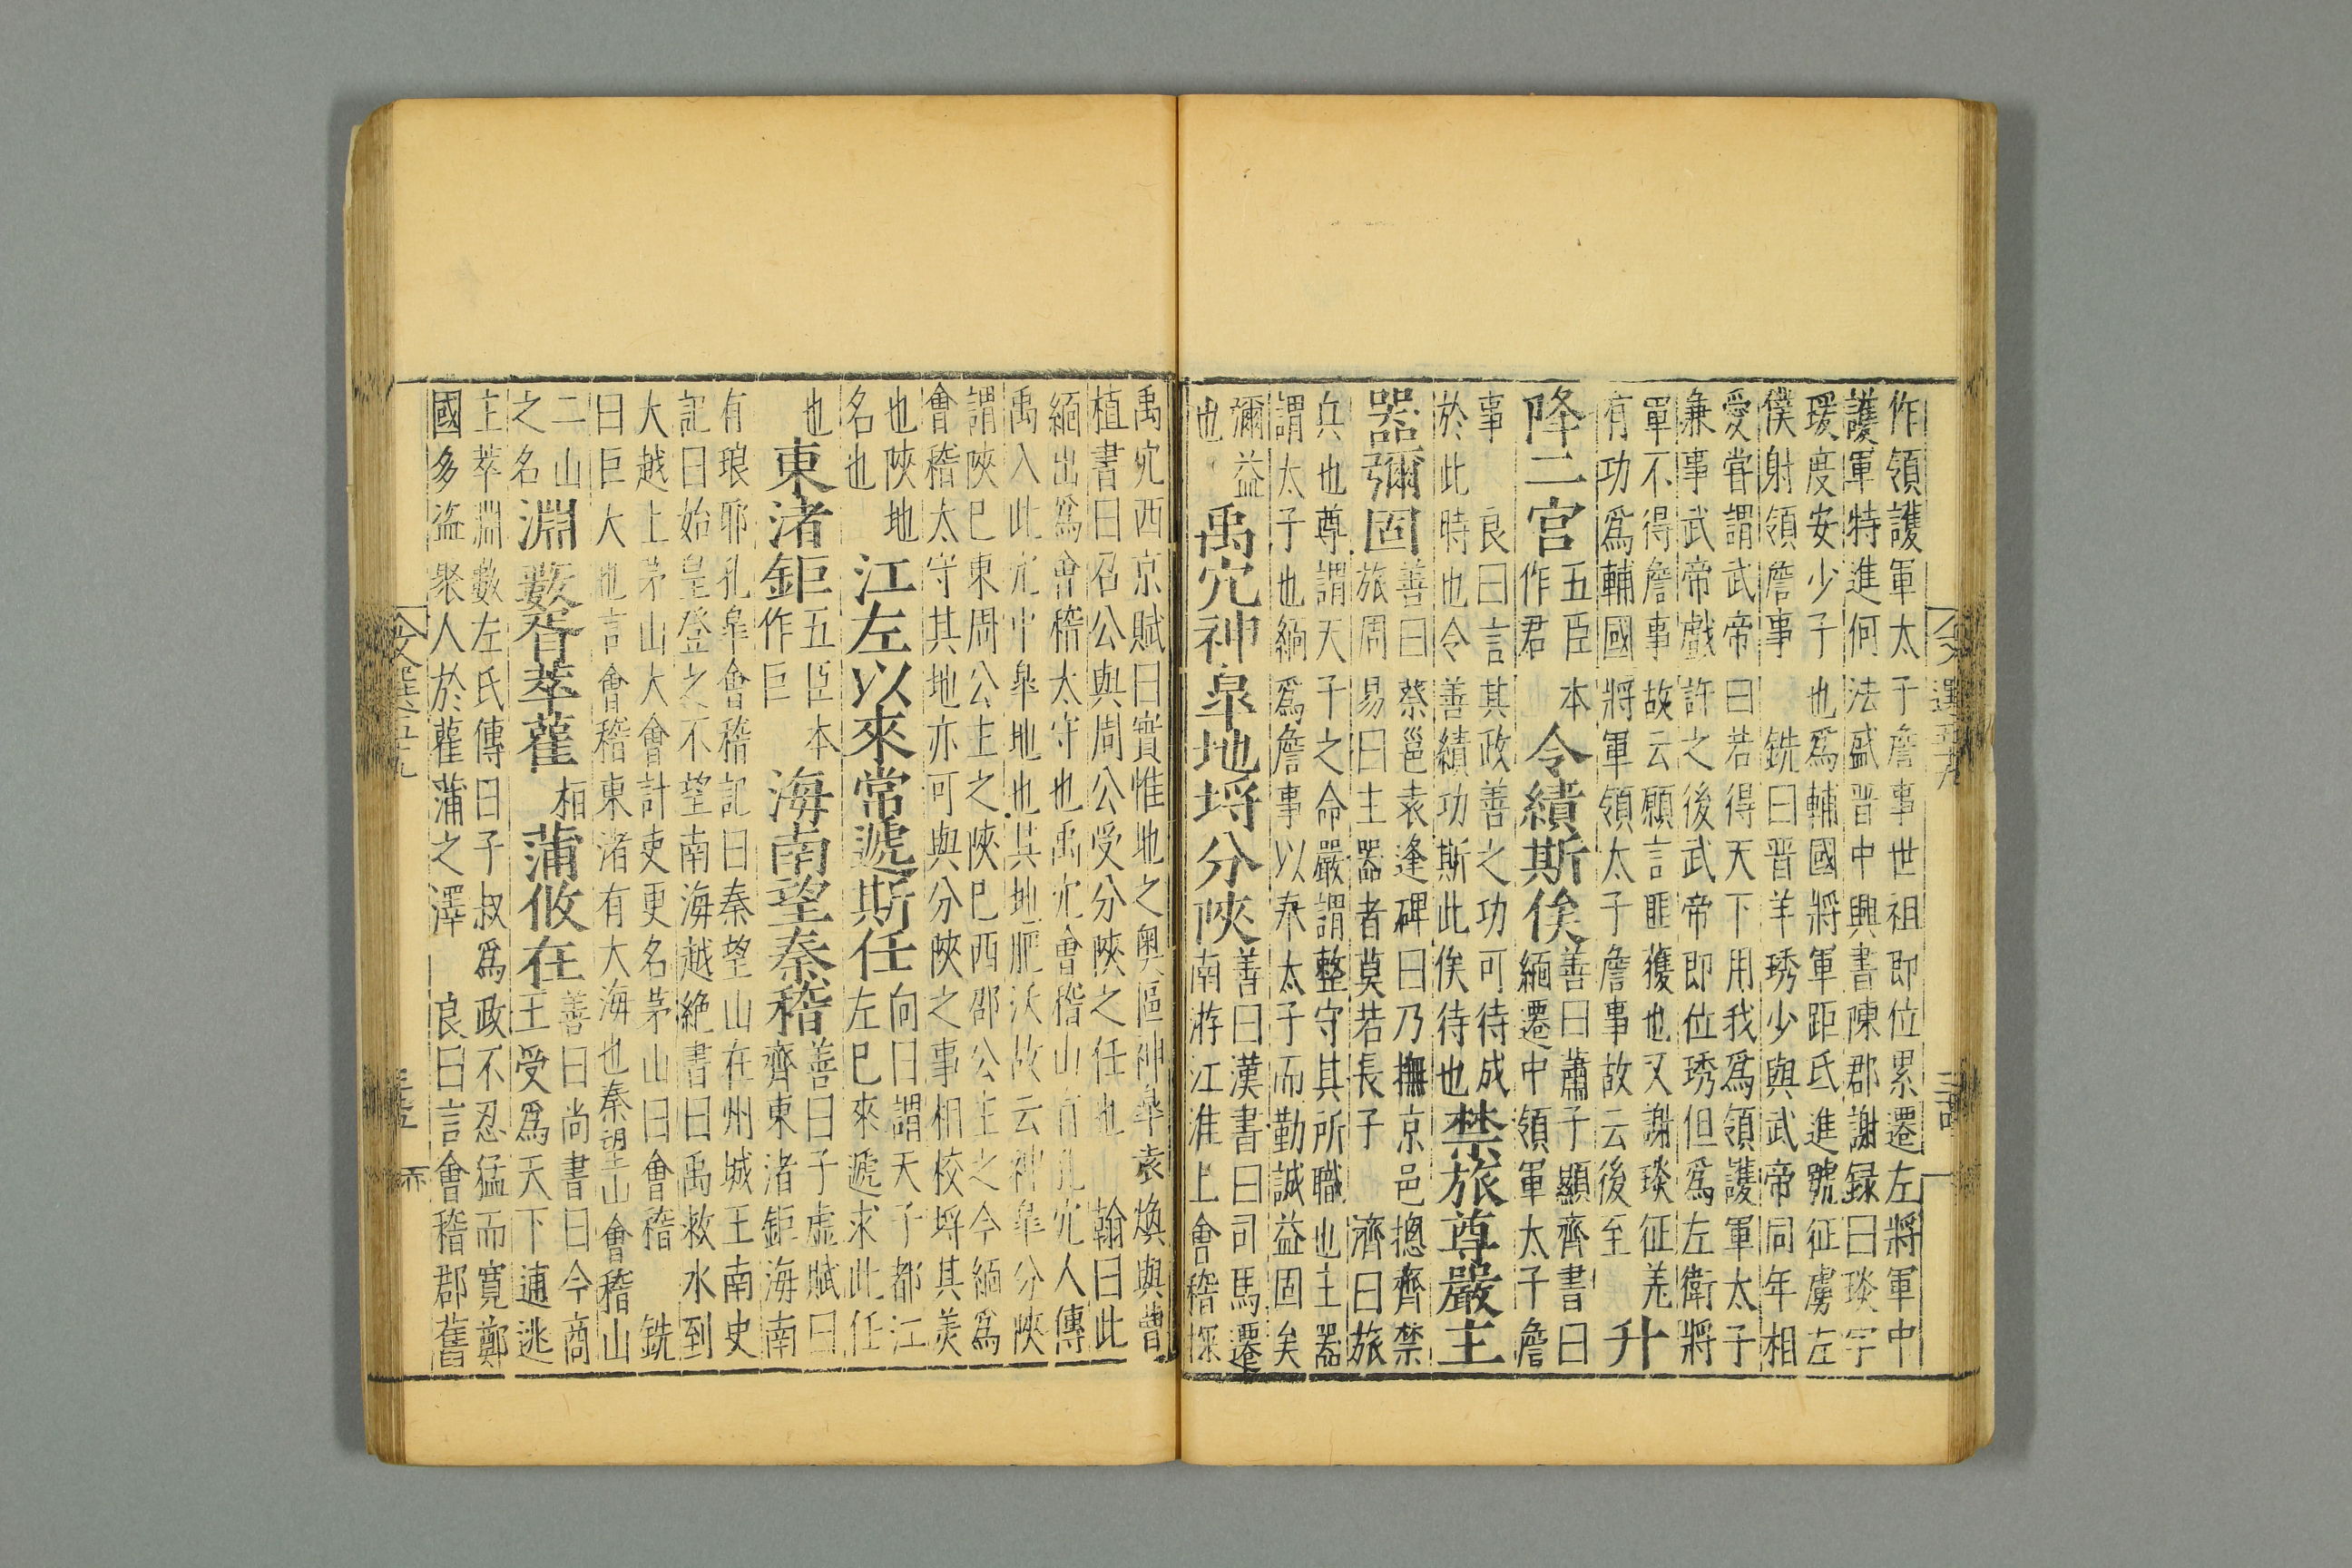 作領護軍太子詹事世祖即位累遷左將軍中
護軍特進何法盛晉中興書陳郡謝録曰琰字
瑗度安少子也爲輔國將軍距氐進號征虜左
僕射領詹事 銑曰晉羊琇少與武帝同年相
愛甞謂武帝曰若得天下用我爲領護軍太子
兼事武帝戲許之後武帝即位琇但爲左衛將
軍不得詹事故云願言匪獲也又謝琰征羌
有功爲輔國將軍領太子詹事故云後至 升
降二官五臣本作君令績斯俟善曰蕭子顯齊書曰
緬遷中領軍太子詹
事 良曰言其政善之功可待成
於此時也令善績功斯此俟待也禁旅尊嚴主
器彌固善曰蔡邕袁逢碑曰乃撫京邑摠齊禁
旅周易曰主器者莫若長子 濟曰旅
兵也尊謂天子之命嚴謂整守其所職也主器
謂太子也緬爲詹事以奉太子而勤誠益固矣
彌益也禹穴神皐地埒分陝善曰漢書曰司馬遷
南游江淮上會稽探
禹穴西京賦曰實惟地之奧區神皐袁煥與曹
植書曰召公與周公受分陝之任也 翰曰此
緬出爲會稽太守也禹穴會稽山有孔穴人傳
禹入此穴中皐地也其地肥沃故云神皐分陝
謂陝巳東周公主之陝巳西邵公主之今緬爲
會稽太守其地亦可與分陝之事相校埒其美
也陝地名也江左以來常遞斯任向曰謂天子都江
左巳來遞求此任
也東渚鉅五臣本作巨海南望秦稽善曰子虛賦曰
齊東渚鉅海南
有琅耶孔皐會稽記曰秦望山在州城王南史
記曰始皇登之不望南海越絶書曰禹救水到
大越上茅山大會計吏更名茅山曰會稽 銑
曰巨大也言會稽東渚有大海也秦望山會稽山
二山之名淵藪胥萃雚桓蒲攸在善曰尚書曰今商
王受爲天下逋逃
主萃淵藪左氏傳曰子叔爲政不忍猛而寛鄭
國多盜聚人於雚蒲之澤 良曰言會稽郡舊